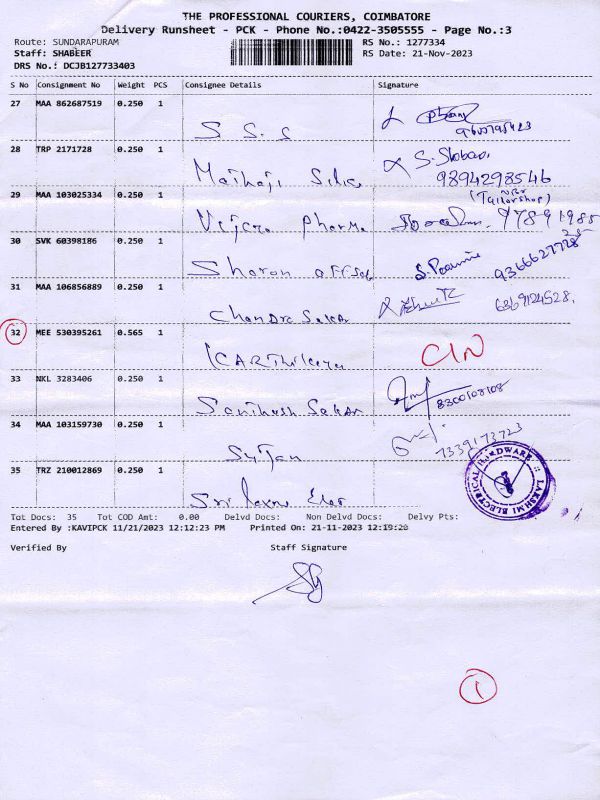 THE PROFESSIONAL COURIERS, COIMBATORE
Delivery Runsheet - PCK - Phone No.:0422-3505555 - Page No.:3
Route: SUNDARAPURAM RS No.: 1277334
Staff: SHABEER RS Date: 21-Nov-2023
DRS No.: DCJB127733403
S No Consignment No Weight PCS Consignee Details Signature
27 MAA 862687519 0.250 1
S S. S
28 TRP 2171728 0.250 1 S. Shobao
Mathaji 9894298546
29 MAA 103025334 0.250 1 (Tailorshop)
Pharma
30 SVK 60398186 0.250 1
Sharon offset S. 9366627728
31 MAA 106856889 0.250 1 6369124528.
Chandra Sekar
32 MEE 530395261 0.565 1
KARThikeya CIN
33 NKL 3283406 0.250 1
Santhosh Sekar 8300108108
34 MAA 103159730 0.250 1
Sujan 7339173723
35 TRZ 210012869 0.250 1
Sri laxmi Elec LAKSHMI ELECTRICAL HARDWARE
Tot Docs: 35 Tot COD Amt: 0.00 Delvd Docs: Non Delvd Docs: Delvy Pts:
Entered By :KAVIPCK 11/21/2023 12:12:23 PM Printed On: 21-11-2023 12:19:20
Verified By Staff Signature
1